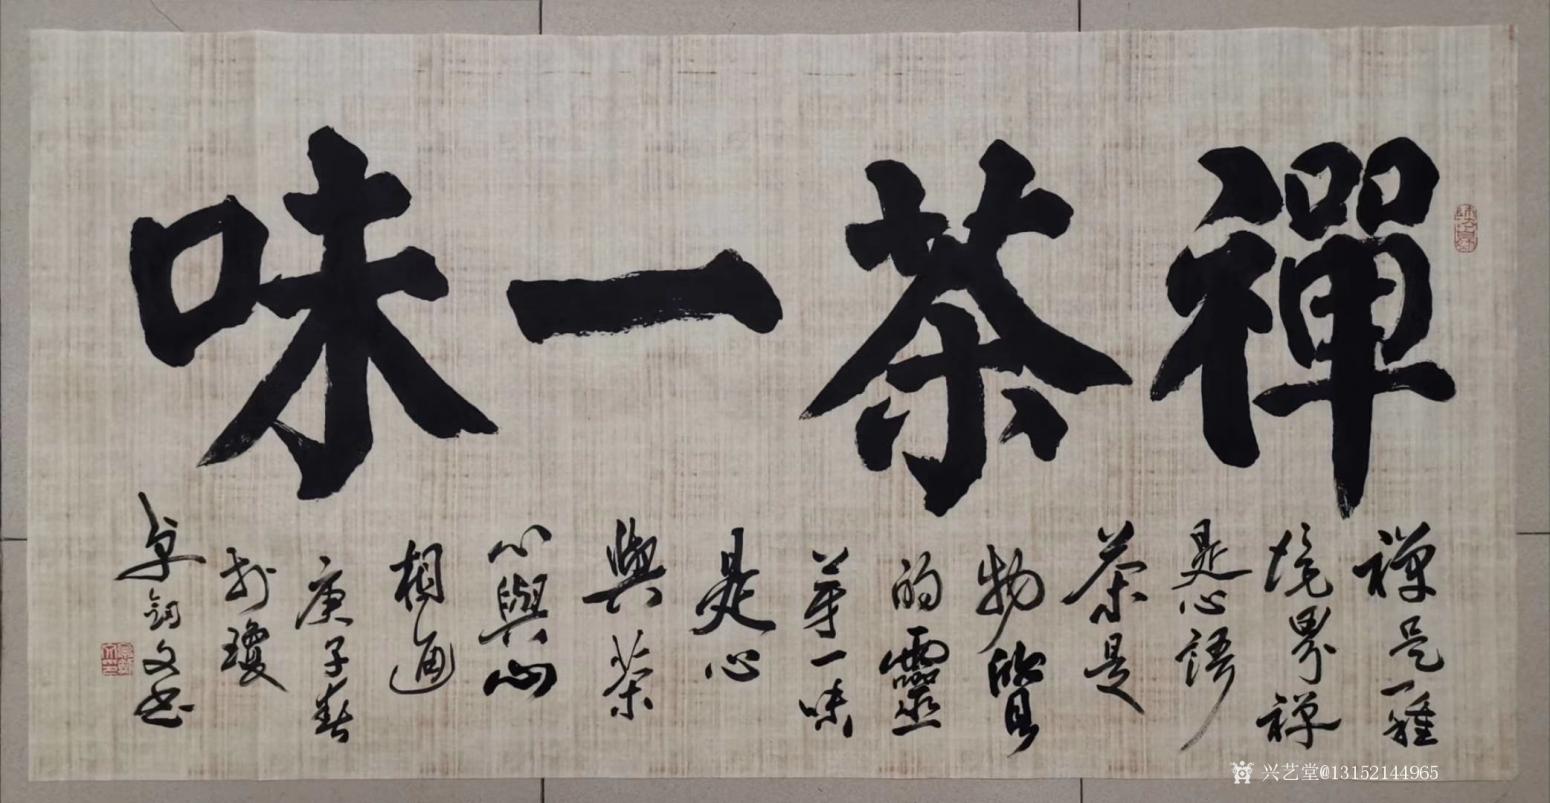 禪茶一味
禅是一種
境界禅
是心語
茶是
物質
的靈
芽一味
是心
與茶
心與心
相通
庚子春
於瓊
卓鈞文書
兴艺堂@13152144965